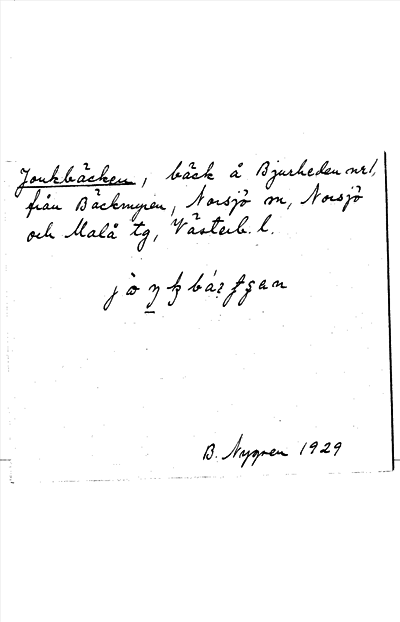 Jonkbäcken, bäck å Bjurheden nr 1,
från Bäckmyren, Norsjö sn, Norsjö
och Malå tg, Västerb. l.
B. Nygren 1929